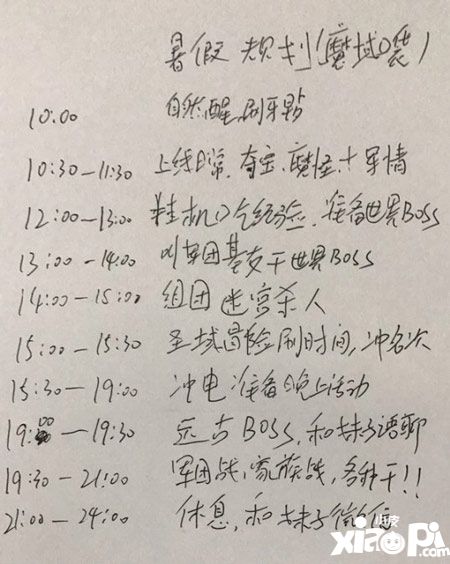 暑假 规划(魔域口袋)
10:00 自然醒,刷牙
10:30—11:30 上线日常,夺宝,魔怪,十军情
12:00—13:00 挂机吃经验,准备世界BOSS
13:00—14:00 叫军团基友干世界BOSS
14:00—15:00 组团迷宫杀人
15:00—15:30 圣域冒险刷时间,冲名次
15:30—19:00 冲电准备晚上活动
19:00—19:30 远古BOSS,和妹子语聊
19:30—21:00 军团战,家族战,各种干!!
21:00—24:00 休息,和妹子微信
xiaopi.com